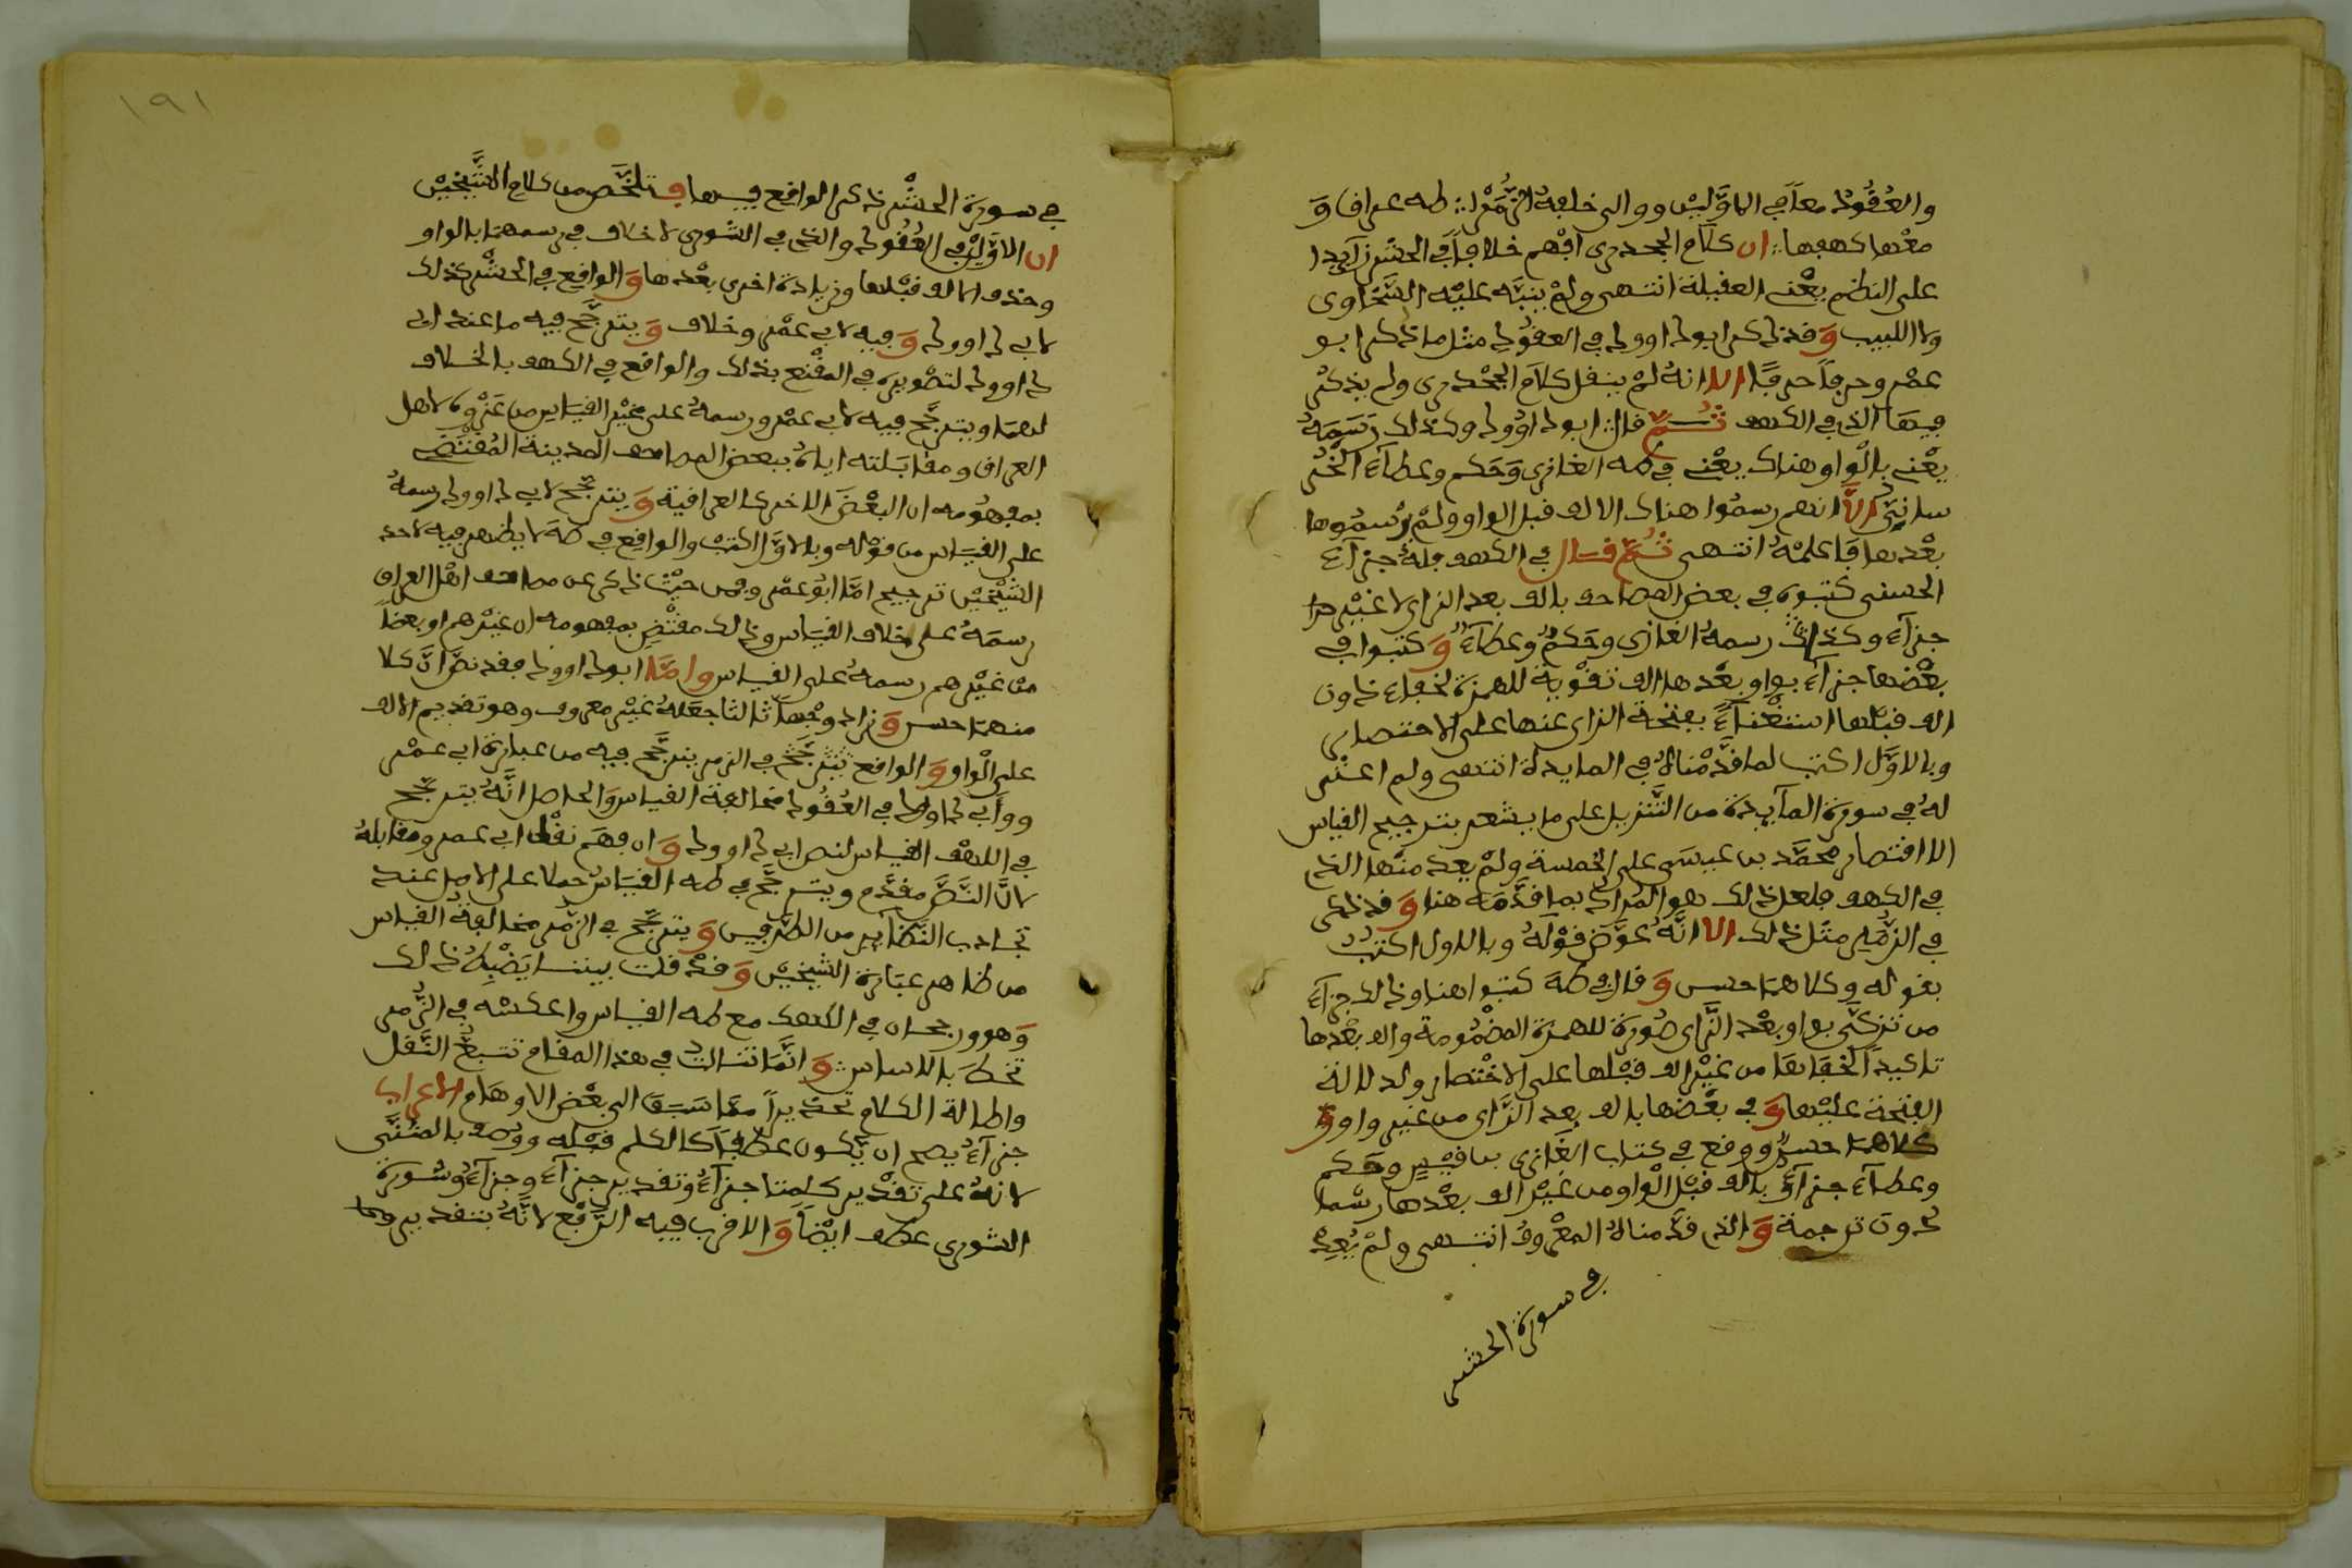 والعُقُودُ معًا في الاوَّلَيْن ووالى خلفهُ الزُّمَرُ ∴ طه عراق وَ
معْها كهفها ∴ ان كلام الجحدرى افْهم خلافًا في الحشر زآيدا
على النظم يعْنى العقيلة انتهى ولمْ ينبَّه عليْه السَّخاوى
ولا اللبيب وَقد ذكر ابو داوود في العقُود مثْل ما ذكر ابو
عمْرو حرفًا حرفًا الا انهُ لمْ ينقل كلام الجحْدرى ولم يذكرْ
فيهَا الذى في الكهف ثُمَّ قال ابو داوُود وكذلك رَسَمَهُ
يعْنى بالْواو هناك يعْنى في طه الغازى وَحَكم وعطآء الخُرَ
سانِيُّ الَّا انهم رسمُوا هناك الالف قبل الواو ولمْ يرْسمُوها
بعْدها فاعلمْهُ انتهى ثُمَّ قال في الكهف فلهُ جزآءً
الحسنى كتبوه في بعض المصاحف بالف بعد الزاى لا غيْر هذا
جزآء وكذلك رسمهُ الغازى وحَكمٌ وعطآءٌ وَكتبوا في
بعْضها جزآء بواو بعْدها الف تقْوية للهمزة لخفاء دون
الف قبْلها اسْتغْنآءً بفتحة الزاى عنها على الاختصار
وبالاوَّل اكتب لما قدَّمْناهُ في المايدة انتهى ولم اعثر
لهُ في سورة المآيدة من التَّنزيل على ما يشعر بترجيح القياس
الا اقتصار محمَّد بن عيسَى على الخمسة ولمْ يعد منْها الذى
في الكهف فلعل ذلك هو المُراد بما قدَّمَه هنا وَقد ذكر
في الزُّمَر مثْل ذلك الا انَّهُ عوَّض قوْلهُ وبالاول اكتبُ
بقوله وكلاهمَا حسن وَقال في طهَ كتبوا هنا وذالك جزآء
من تزكَّى بواو بعْد الزَّاى صُورة للهمزة المضْمُومة والف بعْدها
تاكيدًا لخفائها من غيْر الف قبْلها على الاخْتصار ولدلالة
الفتحة عليْها وَفي بعْضها بالف بعد الزَّاى من غير واو وَ
كلاهمَا حسنٌ ووقع في كتاب الغازى بن قيْسٍ وحَكم
وعطآء جزآؤُ بالف قبْل الْواو من غيْر الف بعْدها رسْما
دون ترجمة وَالذى قدَّمناهُ المعْروفُ انتهى ولمْ يُعِدْ
في سورة الحشر
١٩١
في سورة الحشْر ذكر الواقع فيها فتلخَّص من كلام الشَّيْخيْن
ان الاوَّليْن في العُقُود والذى في الشورى لا خلاف في رسمهمَا بالواو
وحذف الالف قبْلها وزيادة اخرى بعْدها وَالواقع في الحشْر كذلك
لابى داوود وَفيه لابى عمْرو خلاف وَيترجَّح فيه ما عند ابى
داوود لتصْويره في المقْنع بذلك والواقع في الكهف بالخلاف
لهمَا ويترجَّح فيه لابى عمْرو رسمهُ على غيْر القيَاس من عَزْوه لاهل
العراق ومقابَلته اياهُ ببعض المصاحف المدينة المُقْتَضِى
بمفهُومه ان البعْضَ الاخر كالعراقية وَيترجَّح لابى داوود رسمهُ
على القيَاس من قوْله وبالاوَّل اكتبُ والواقع في طهَ لا يظهر فيه لاحد
الشيْخيْن ترجيح امَّا ابُو عمْرو فمن حيْثُ ذكر عن مصاحف اهْل العراق
رسمَهُ على خلاف القيَاس وذلك مقتْضٍ بمفهومه ان غيْرهم او بعضًا
منْ غيْرهم رسمهُ على القياس وامَّا ابو داوود فقد نصَّ انَّ كلا
منهمَا حسن وَزاد وجْهًا ثالثا جعَلهُ غيْر معروف وهو تقديم الالف
على الْواو وَالواقع في الزمر يترجَّح فيه من عبارة ابى عمْرو
وأبى داوود في العُقُود مخالفة القياس وَالحاصل انَّهُ يترجَّح
في الكهْف القياس لنص ابى داوود وَان فهم نقْل ابى عمرو مقابلهُ
لانَّ النَّصَّ مقدَّم ويترجَّح في طه القيَاسُ حملا على الاصل عند
تجاذب النَّظآير من الطَّرفين وَيترجَّح في الزُّمَر مخالفةُ القياس
من ظاهر عبَارة الشيْخيْن وَقدْ قلت بيتا يَضْبطُ ذلك
وَهو ورجحان في الكهف مع طه القياس واعكسْه في الزُّمر
تحظَ بالاساس ∴ وَانَّمَا في هذا المقام تتبعُ النَّقل
واطالة الكلام تحْذيرًا ممَّا سَبَقَ الى بعْض الاوهَام الاعراب
جزآءُ يصح ان يَكُون عطْفًا كالكلم قبْله ووُصف بالمثنَّى
لانهُ على تقْدير كلمتا جزآءُ وَتقدير جزآء وجزآءُ وشورة
الشورى عطف ايْضًا وَالاقرب فيه الرَّفْع لانَّهُ بتقدير وهما